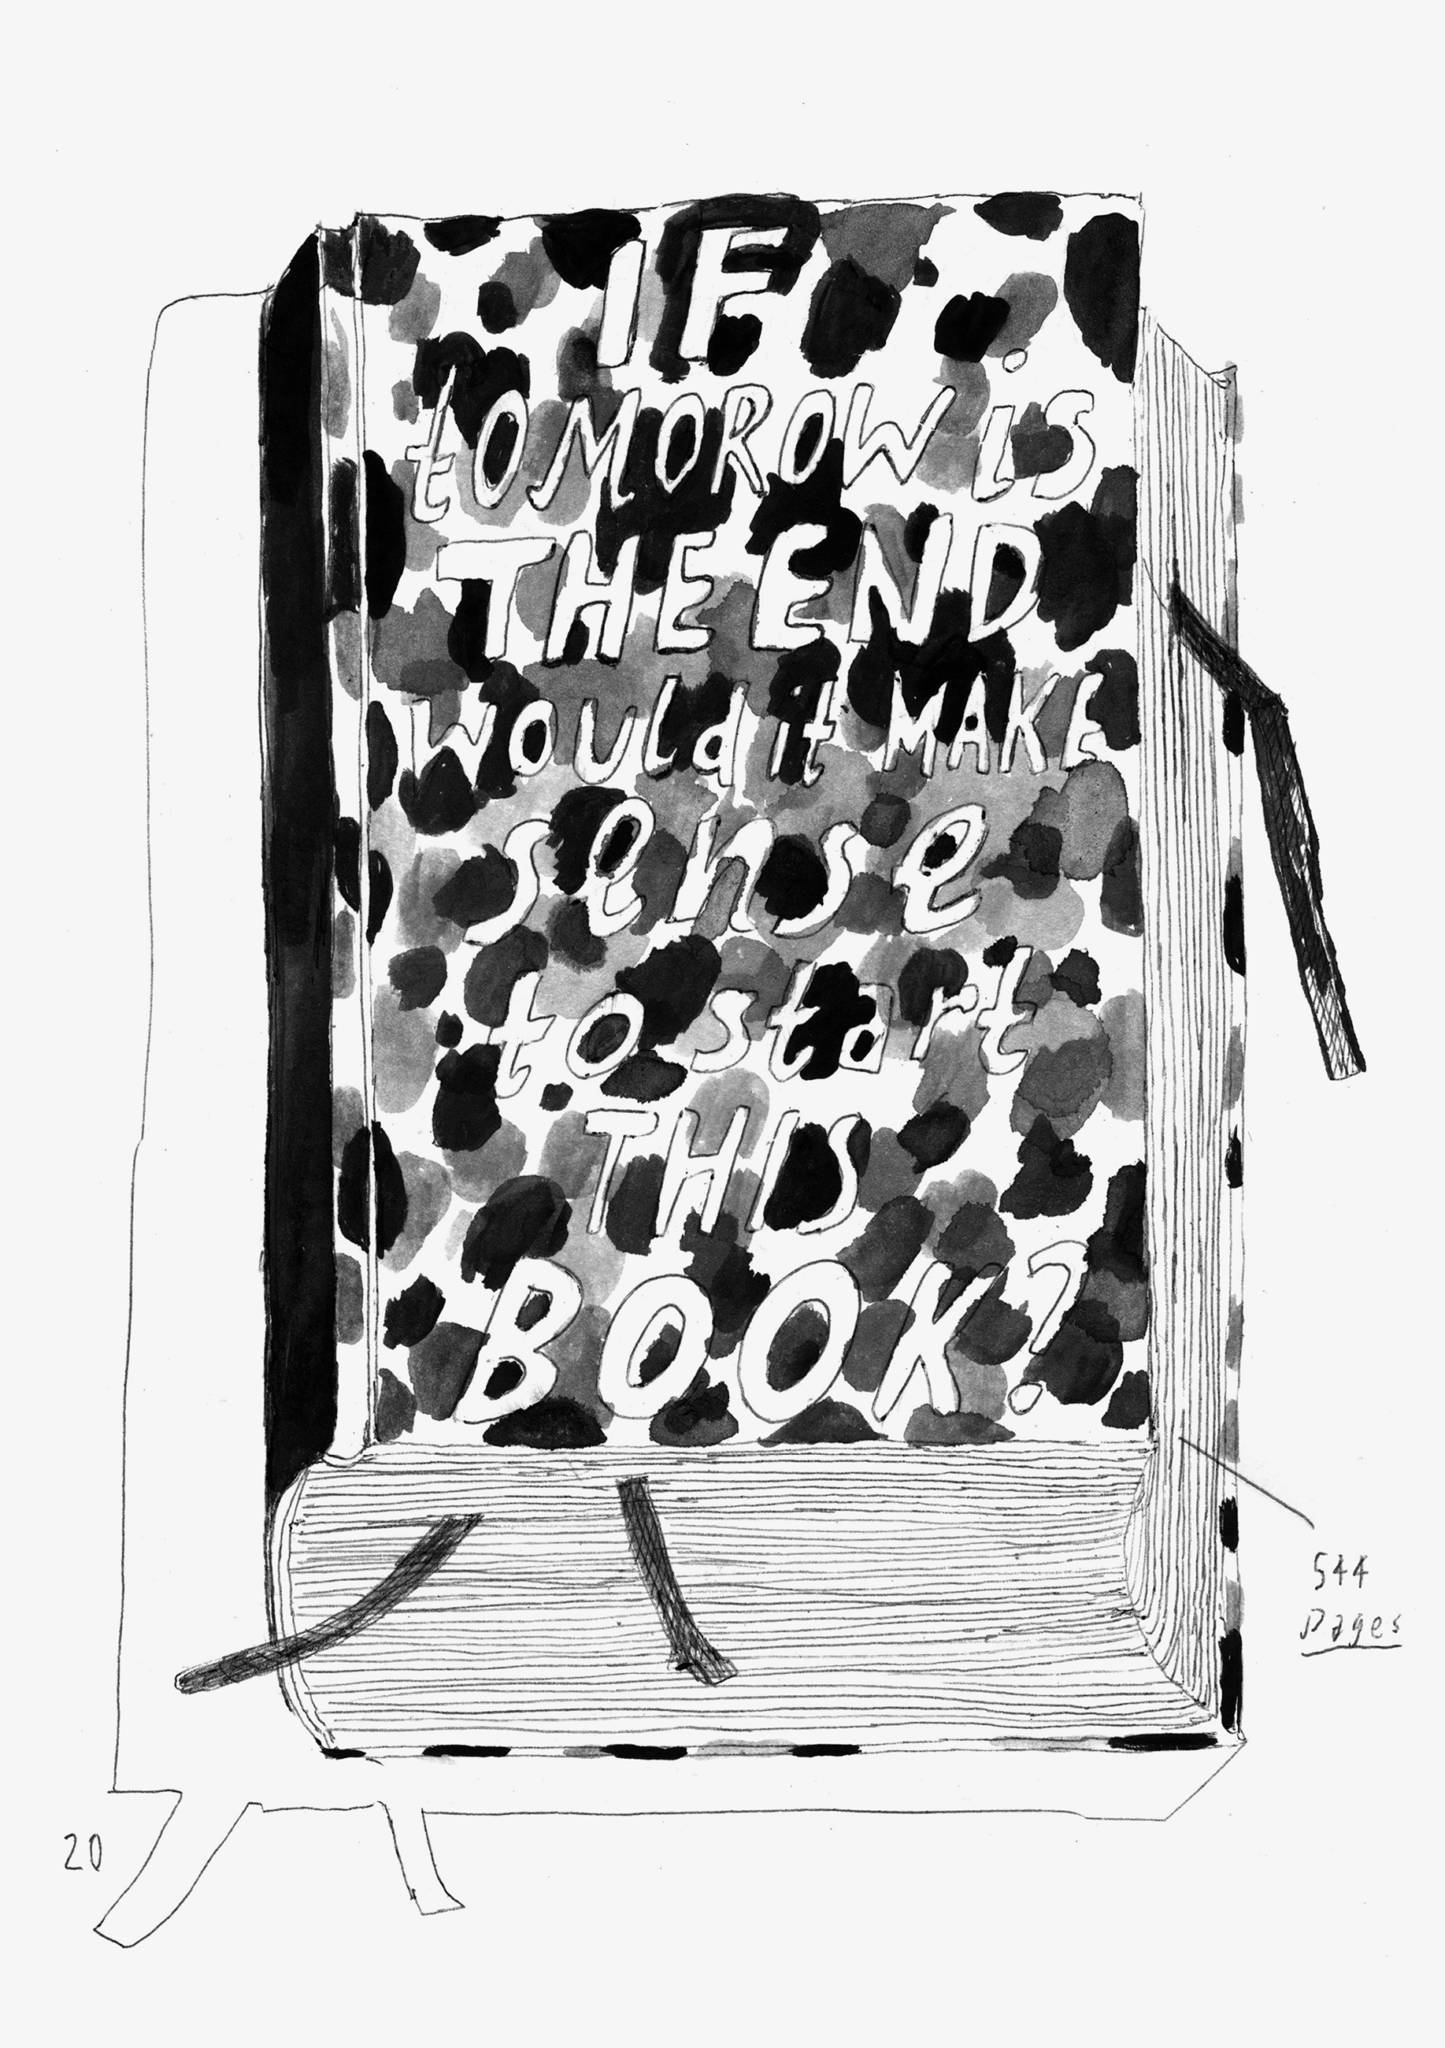 IF
tOMOROW is
THE END
Would it MAKE
sense
to start
THIS
BOOK?
544
Pages
20